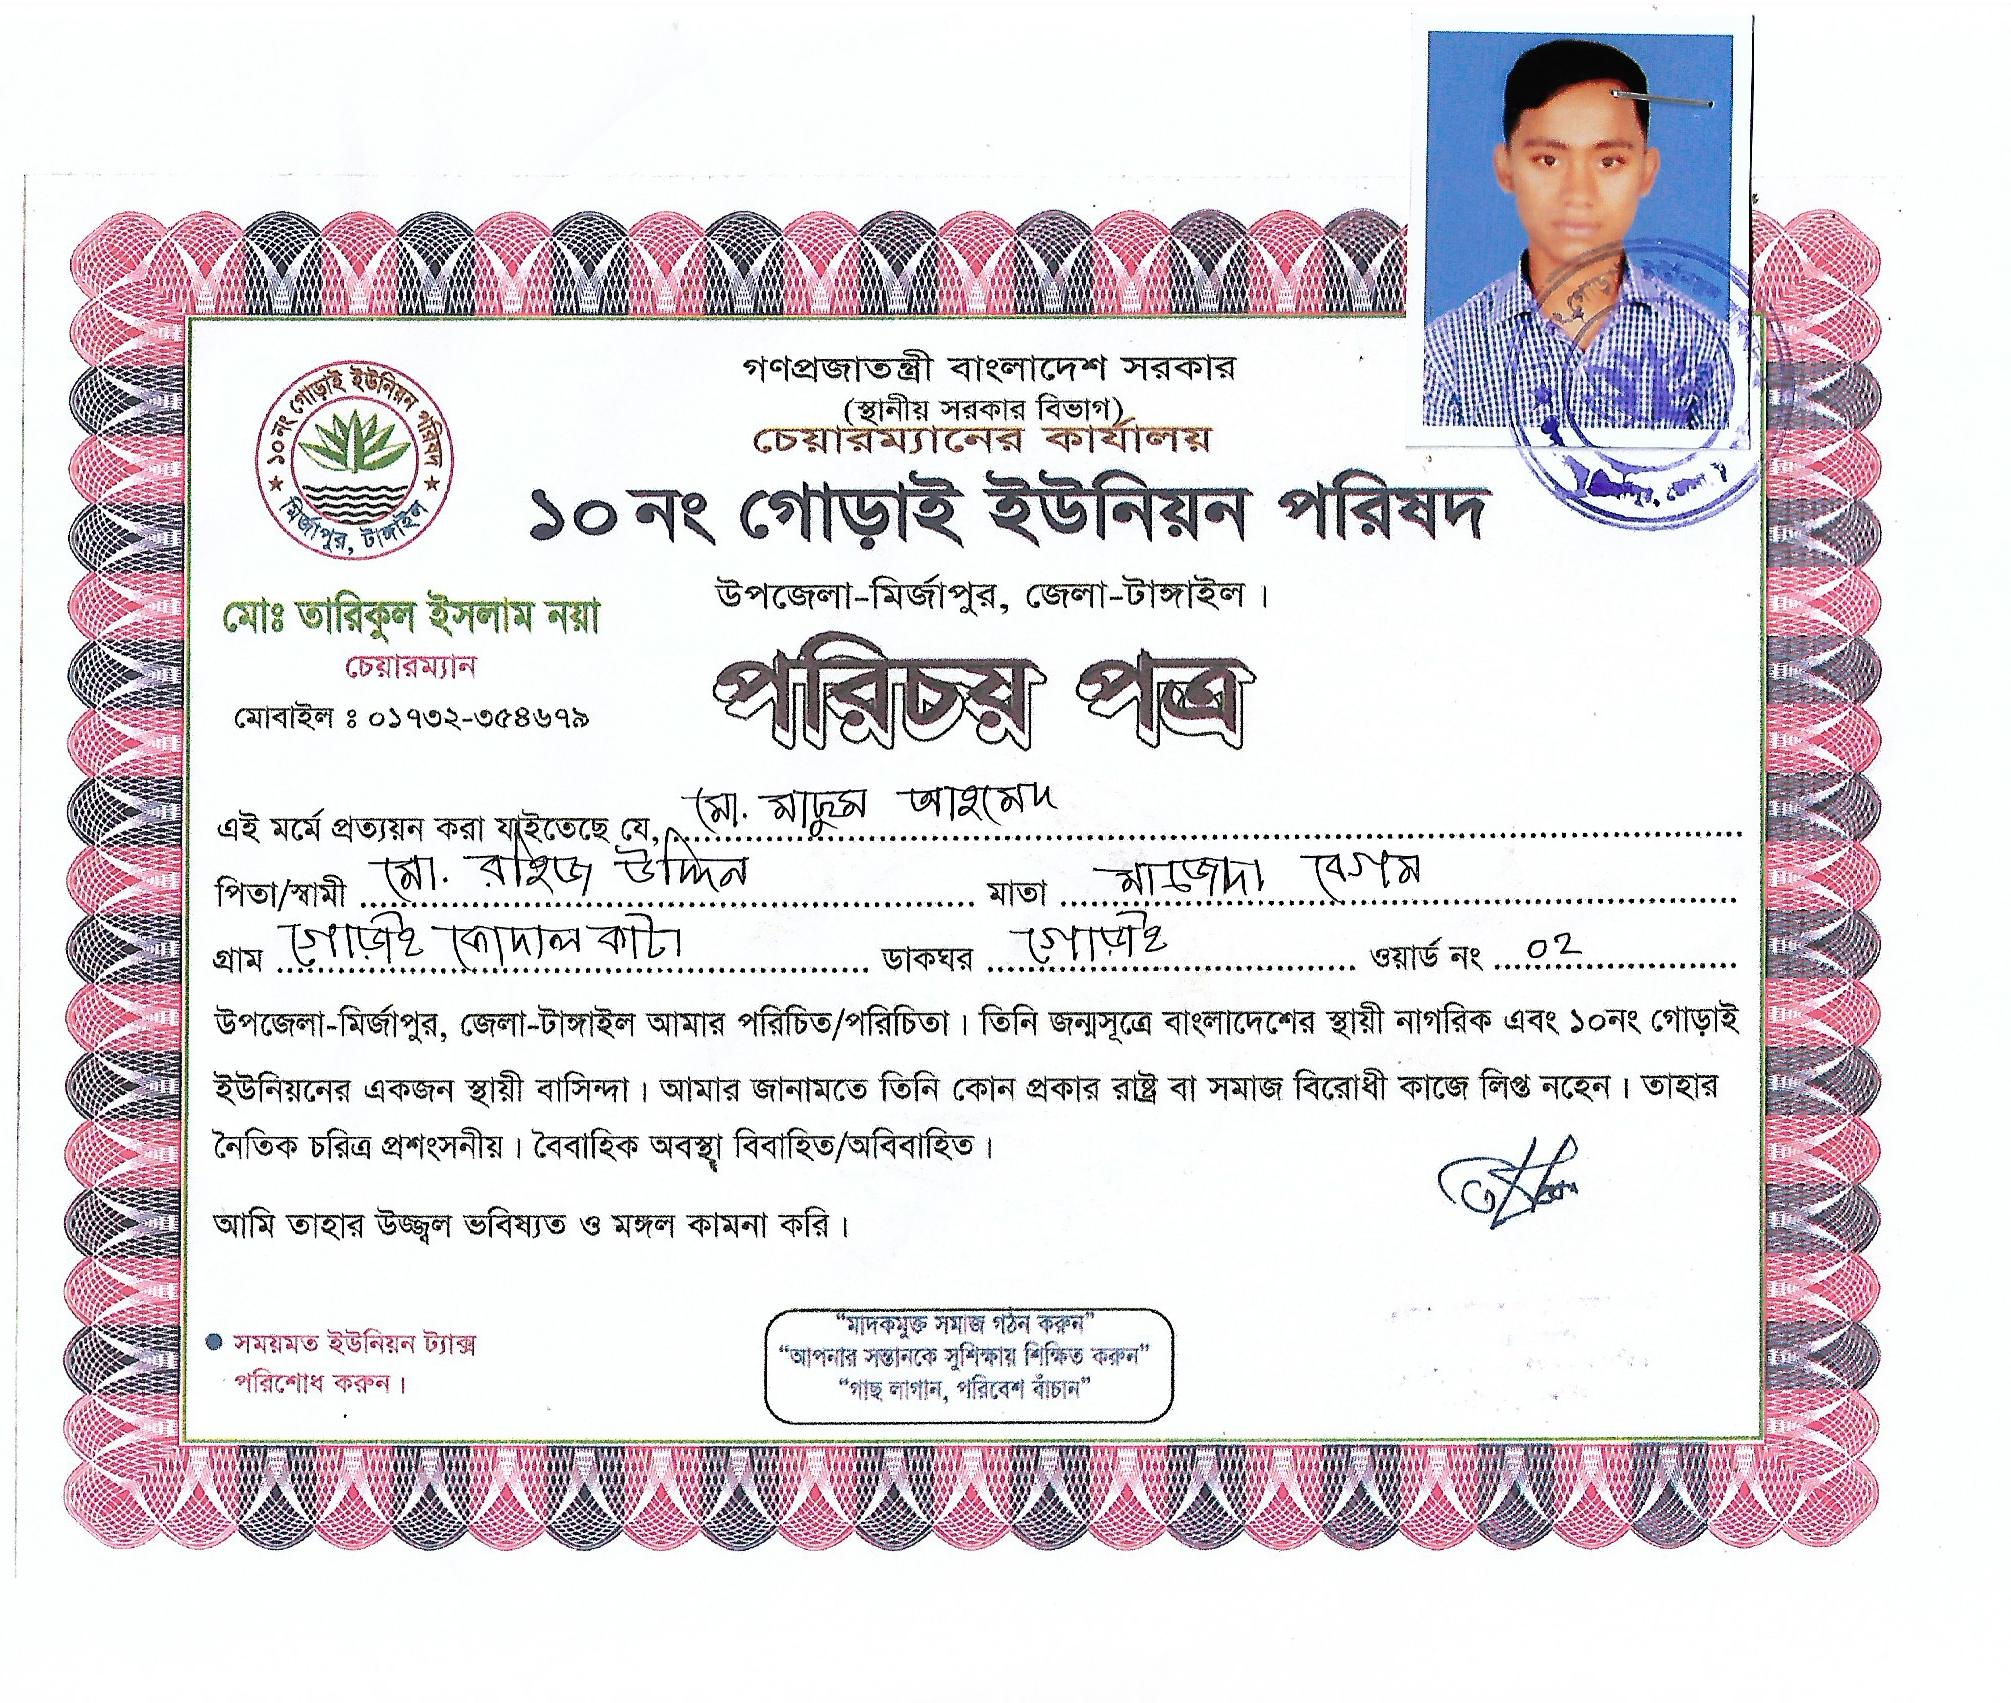 গণপ্রজাতন্ত্রী বাংলাদেশ সরকার
(স্থানীয় সরকার বিভাগ)
চেয়ারম্যানের কার্যালয়
১০নং গোড়াই ইউনিয়ন পরিষদ
মির্জাপুর, টাঙ্গাইল
১০ নং গোড়াই ইউনিয়ন পরিষদ
উপজেলা-মির্জাপুর, জেলা-টাঙ্গাইল।
মোঃ তারিকুল ইসলাম নয়া
চেয়ারম্যান
মোবাইল ঃ ০১৭৩২-৩৫৪৬৭৯
পরিচয় পত্র
এই মর্মে প্রত্যয়ন করা যাইতেছে যে, মো. মাছুম আহমেদ
পিতা/স্বামী মো. রহিজ উদ্দিন মাতা মাজেদা বেগম
গ্রাম গোড়াই কোদাল কাটা ডাকঘর গোড়াই ওয়ার্ড নং ০২
উপজেলা-মির্জাপুর, জেলা-টাঙ্গাইল আমার পরিচিত/পরিচিতা। তিনি জন্মসূত্রে বাংলাদেশের স্থায়ী নাগরিক এবং ১০নং গোড়াই
ইউনিয়নের একজন স্থায়ী বাসিন্দা। আমার জানামতে তিনি কোন প্রকার রাষ্ট্র বা সমাজ বিরোধী কাজে লিপ্ত নহেন। তাহার
নৈতিক চরিত্র প্রশংসনীয়। বৈবাহিক অবস্থা বিবাহিত/অবিবাহিত।
আমি তাহার উজ্জ্বল ভবিষ্যত ও মঙ্গল কামনা করি।
সময়মত ইউনিয়ন ট্যাক্স
পরিশোধ করুন।
"মাদকমুক্ত সমাজ গঠন করুন"
"আপনার সন্তানকে সুশিক্ষায় শিক্ষিত করুন"
"গাছ লাগান, পরিবেশ বাঁচান"